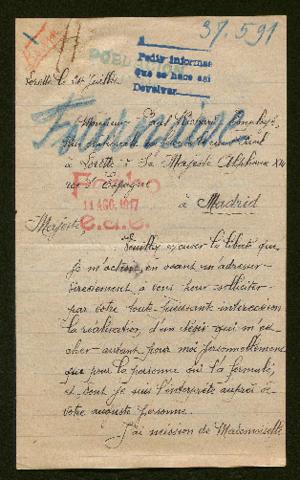 37.591
A
Pedir informes
que se hace así
Devolver
POBLACION
Lorette le 21 Juillet
Fournaise
Monsieur Paul Richard
à Lorette à Sa Majesté Alphonse XIII
roi d'Espagne
à Madrid
Fecho
11 AGO. 1917
Majesté
Veuillez excuser la liberté que
je m'octroie en osant m'adresser
directement à vous pour solliciter
par votre toute puissante intercession
la réalisation, d'un désir qui m'est
cher autant pour moi personnellement
que pour la personne qui l'a formulé,
et dont je suis l'interprète auprès de
votre auguste personne.
J'ai mission de Mademoiselle